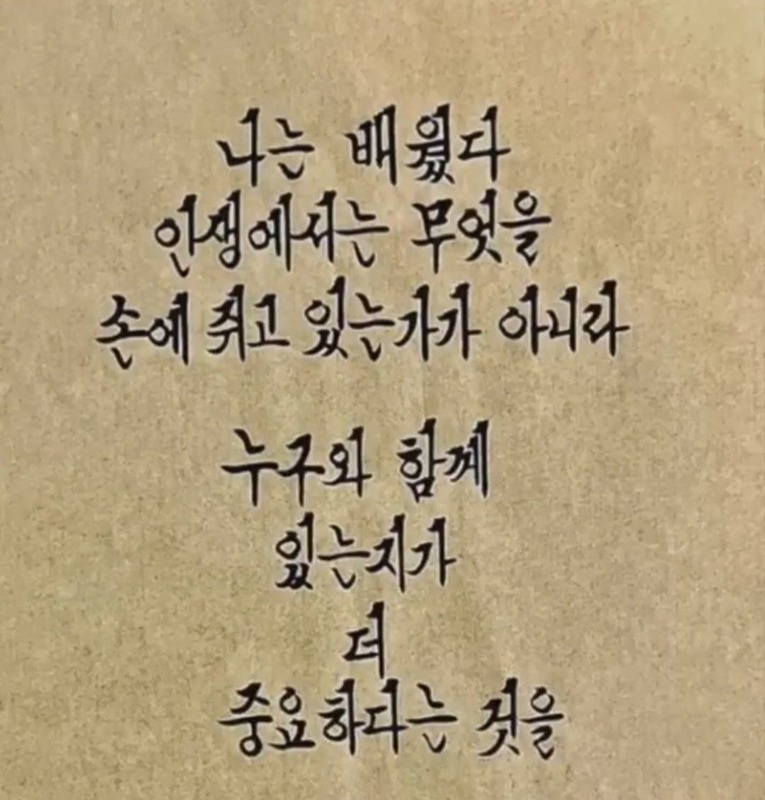 나는 배웠다
인생에서는 무엇을
손에 쥐고 있는가가 아니라
누구와 함께
있는지가
더
중요하다는 것을